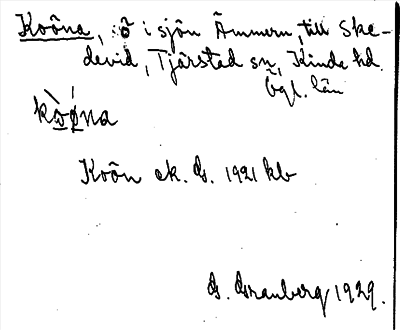 Koöna, ö i sjön Ämmern, till Ske-
devid, Tjärstad sn, Kinda hd.
Ögl. län
kò̱ǿna
Koön ek. G. 1921 kb
G. Granberg 1929.